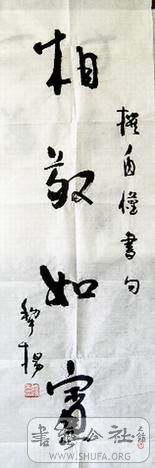 書句
相敬如賓
黎楊
書法公社
WWW.SHUFA.ORG